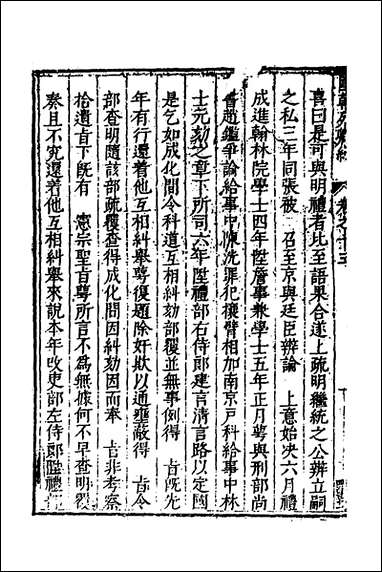 喜曰是可與明禮者比至語果合遂上疏明繼統之公辨立嗣
之私三年同張被 召至京與廷臣辨論 上意始决六月禮
成進翰林院學士四年陞詹事兼學士五年正月萼與刑部尚
書趙鑑爭論給事中陳洸罪犯攘臂相加南京戶科給事中林
士元劾之章下所司六年陞禮部右侍郎建言清言路以定國
是乞如成化間令科道互相糾劾部覆並無事例得 旨旣先
年有行還着他互相糾舉萼復題除奸欺以通壅蔽得 旨令
部查明題該部疏覆查得成化間因糾劾因而奉 旨非考察
拾遺旨下旣有 憲宗聖旨萼所言不為無據何不早查明覆
奏且不究還着他互相糾舉來說本年改吏部左侍郎陞禮